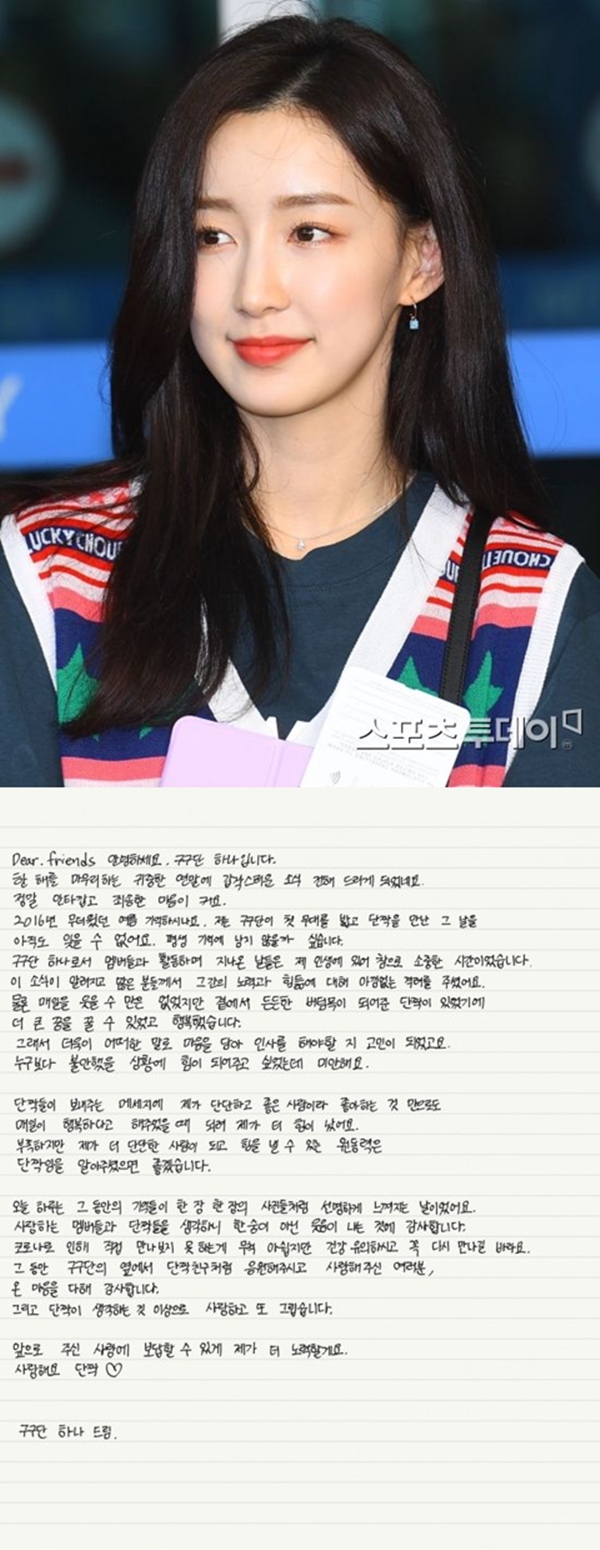 LUCKYCHOUE
CHOUE
스포츠투데이
Dear. friends 안녕하세요. 구구단 하나입니다.
한 해를 마무리하는 귀중한 연말에 갑작스러운 소식 전해 드리게 되었네요.
정말 안타깝고 죄송한 마음이 커요.
2016년 무더웠던 여름 기억하시나요. 저는 구구단이 첫 무대를 밟고 단짝을 만난 그 날을
아직도 잊을 수 없어요. 평생 기억에 남지 않을까 싶습니다.
구구단 하나로서 멤버들과 활동하며 지나온 날들은 제 인생에 있어 참으로 소중한 시간이었습니다.
이 소식이 알려지고 많은 분들께서 그간의 노력과 힘듦에 대해 아낌없는 격려를 주셨어요.
물론 매일을 웃을 수 만은 없었지만 곁에서 든든한 버팀목이 되어준 단짝이 있었기에
더 큰 꿈을 꿀 수 있었고 행복했습니다.
그래서 더욱이 어떠한 말로 마음을 담아 인사를 해야할 지 고민이 되었고요.
누구보다 불안했을 상황에 힘이 되어주고 싶었는데 미안해요.
단짝들이 보내주는 메세지에 제가 단단하고 좋은 사람이라 좋아하는 것 만으로도
매일이 행복하다고 해주었을 때 되려 제가 더 힘이 났어요.
부족하지만 제가 더 단단한 사람이 되고 힘을 낼 수 있는 원동력은
단짝임을 알아주셨으면 좋겠습니다.
오늘 하루는 그 동안의 기억들이 한 장 한 장의 사진들처럼 선명하게 느껴지는 날이었어요.
사랑하는 멤버들과 단짝들을 생각하니 한숨이 아닌 웃음이 나는 것에 감사합니다.
코로나로 인해 직접 만나보지 못하는게 무척 아쉽지만 건강 유의하시고 꼭 다시 만나길 바라요.
그 동안 구구단의 옆에서 단짝친구처럼 응원해주시고 사랑해주신 여러분,
온 마음을 다해 감사합니다.
그리고 단짝이 생각하는 것 이상으로 사랑하고 또 그립습니다.
앞으로 주신 사랑에 보답할 수 있게 제가 더 노력할게요.
사랑해요 단짝 ♡
구구단 하나 드림.